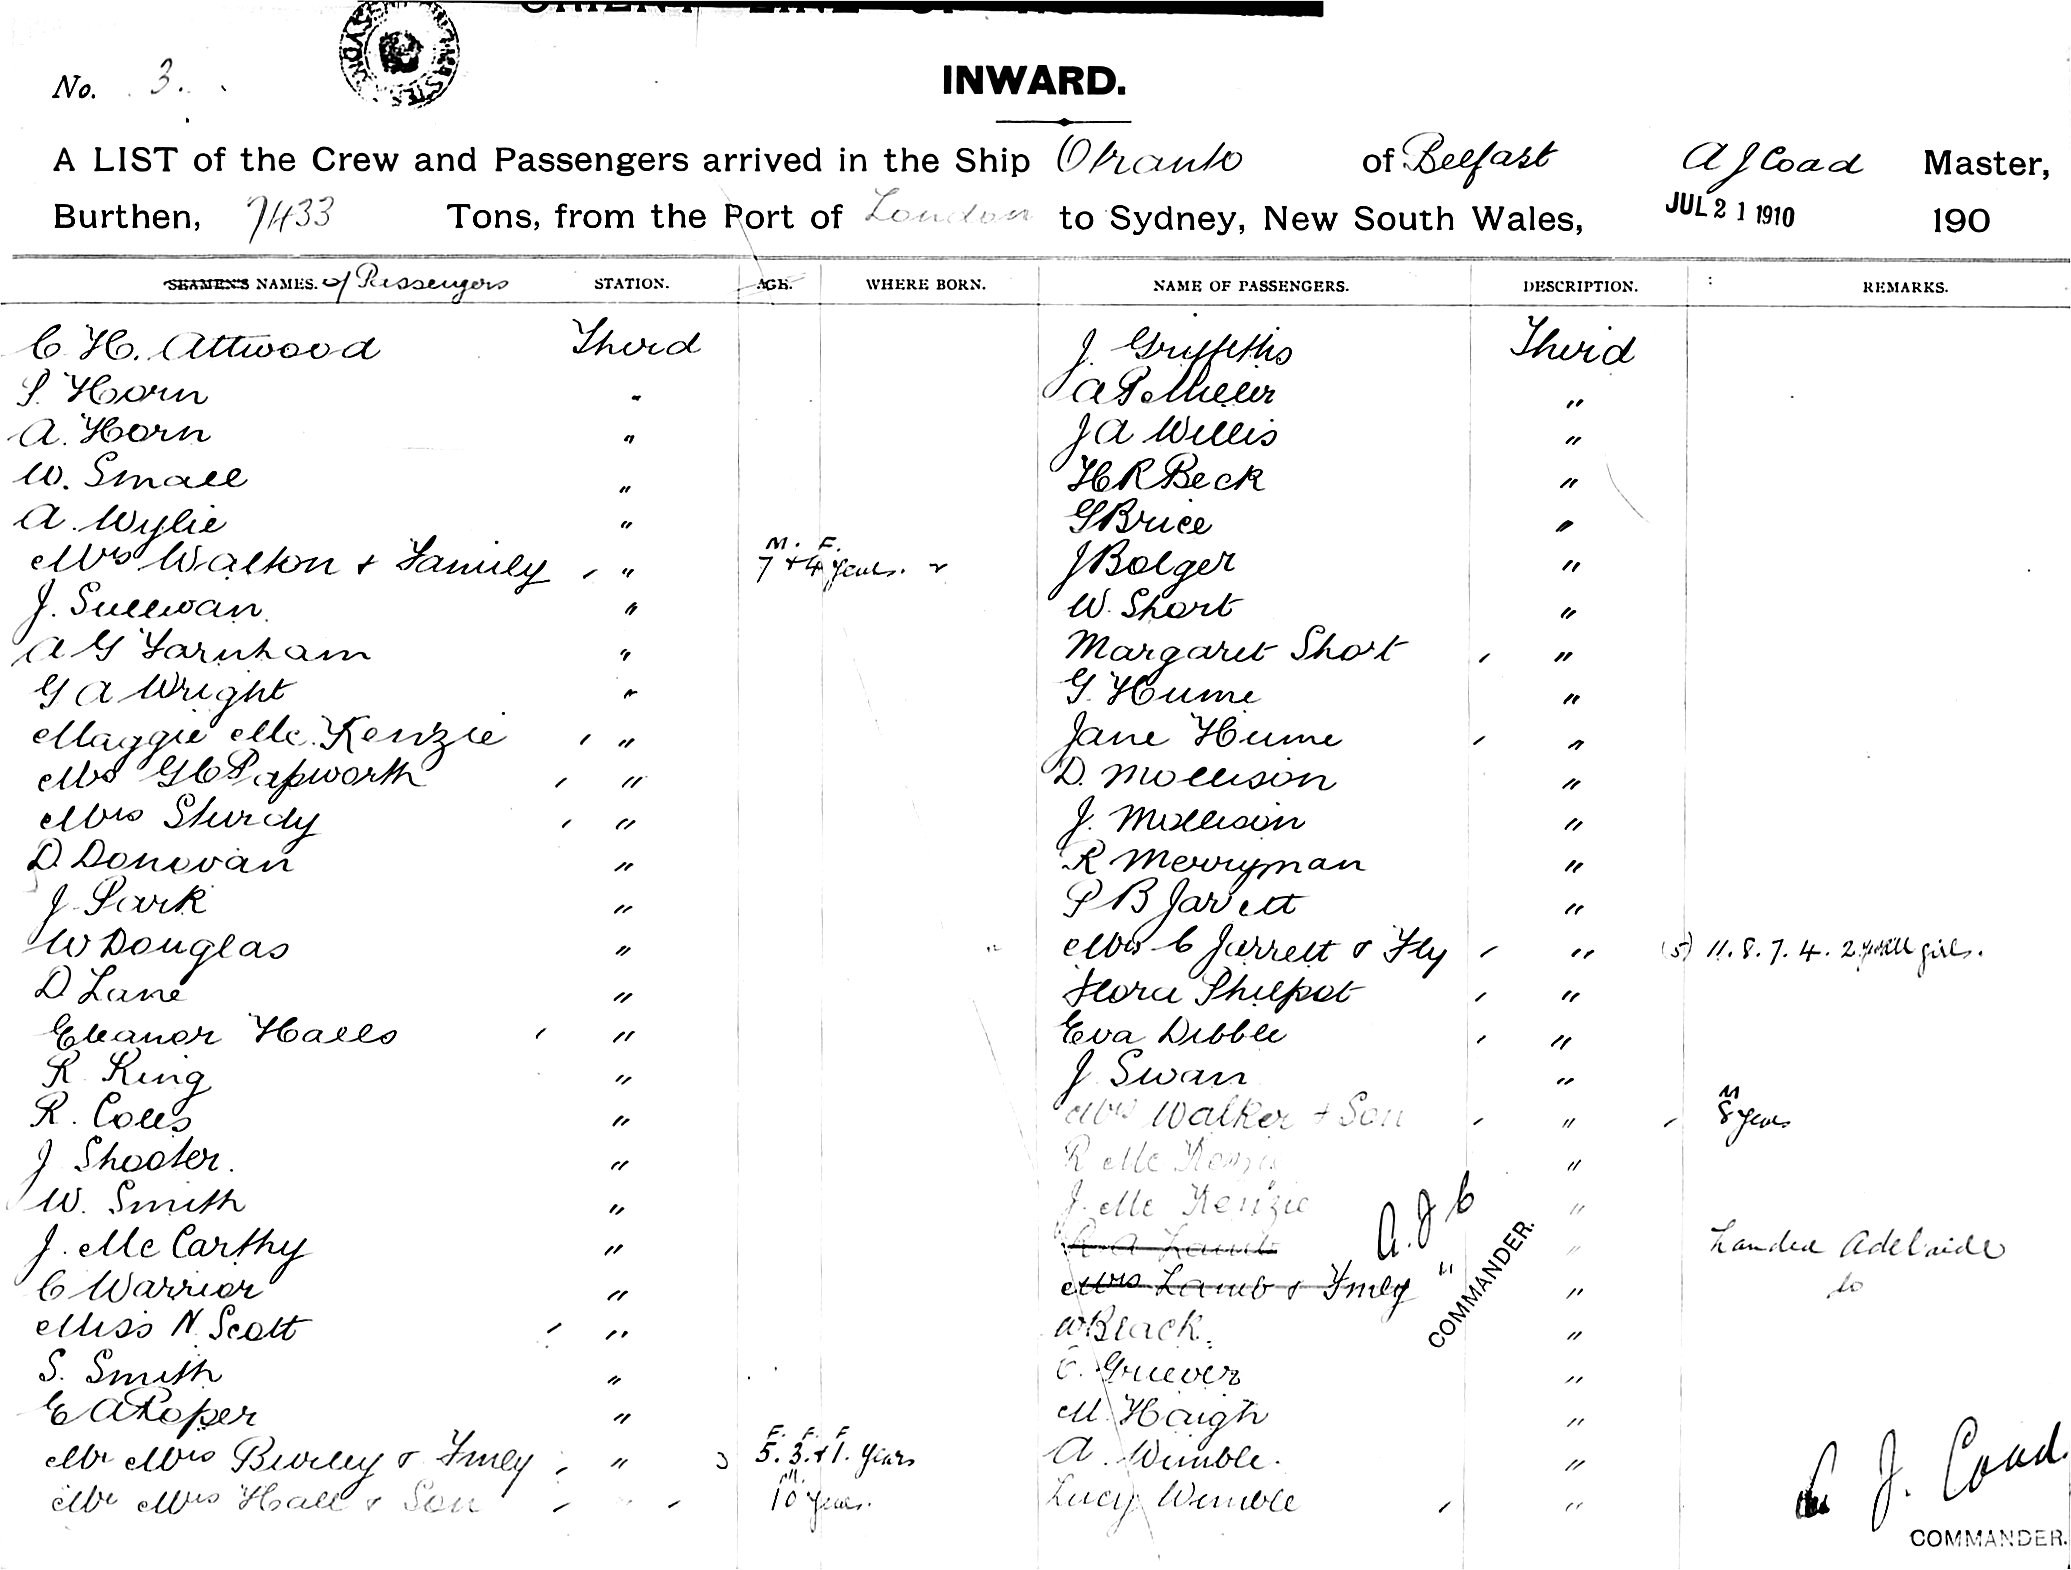 No. 3.
INWARD.
A LIST of the Crew and Passengers arrived in the Ship Otranto of Belfast A J Coad Master,
Burthen, 7433 Tons, from the Port of London to Sydney, New South Wales, JUL 21 1910 190
SEAMEN'S NAMES. of Passengers STATION. AGE. WHERE BORN. NAME OF PASSENGERS. DESCRIPTION. REMARKS.
C H. Attwood Third J. Griffiths Third
S. Horn " "
A. Horn " J A Willis "
W. Small " H R Beck "
A. Wylie " G Brice "
M. F.
Mrs Walton & Family " 7 + 4 years. J Bolger "
J. Sullivan. " W. Short "
A G Farnham " Margaret Short "
G A Wright " G. Hume "
Maggie Mc. Kenzie " Jane Hume "
Mrs G C Papworth " D. Mollison "
Mrs Sturdy " J. Mollison "
D. Donovan " R Merryman "
J. Park " P B Jarrett "
W Douglas " Mrs C Jarrett & Fly " (5) 11. 8. 7. 4. 2 girls.
D Lane " Flora Philpot "
Eleanor Halls " Eva Dibble "
R. King " J Swan "
M
R. Coles " Mrs Walker + Son " 8 years
J Shooter. " R Mc Kenzie "
W. Smith " J. Mc Kenzie "
A. J C
J. Mc Carthy " R A Lamb " Landed Adelaide
C Warrior " Mrs Lamb & Fmly " " Do
COMMANDER.
Miss N. Scott " W Black. "
S. Smith " C. Griever "
E A Roper " M. Haigh "
F. F. F
Mr Mrs Burley & Fmly " 3 5. 3. & 1. years A. Wimble. "
M.
Mr Mrs Hall & Son " 10 years. Lucy Wimble "
A J. Coad.
COMMANDER.